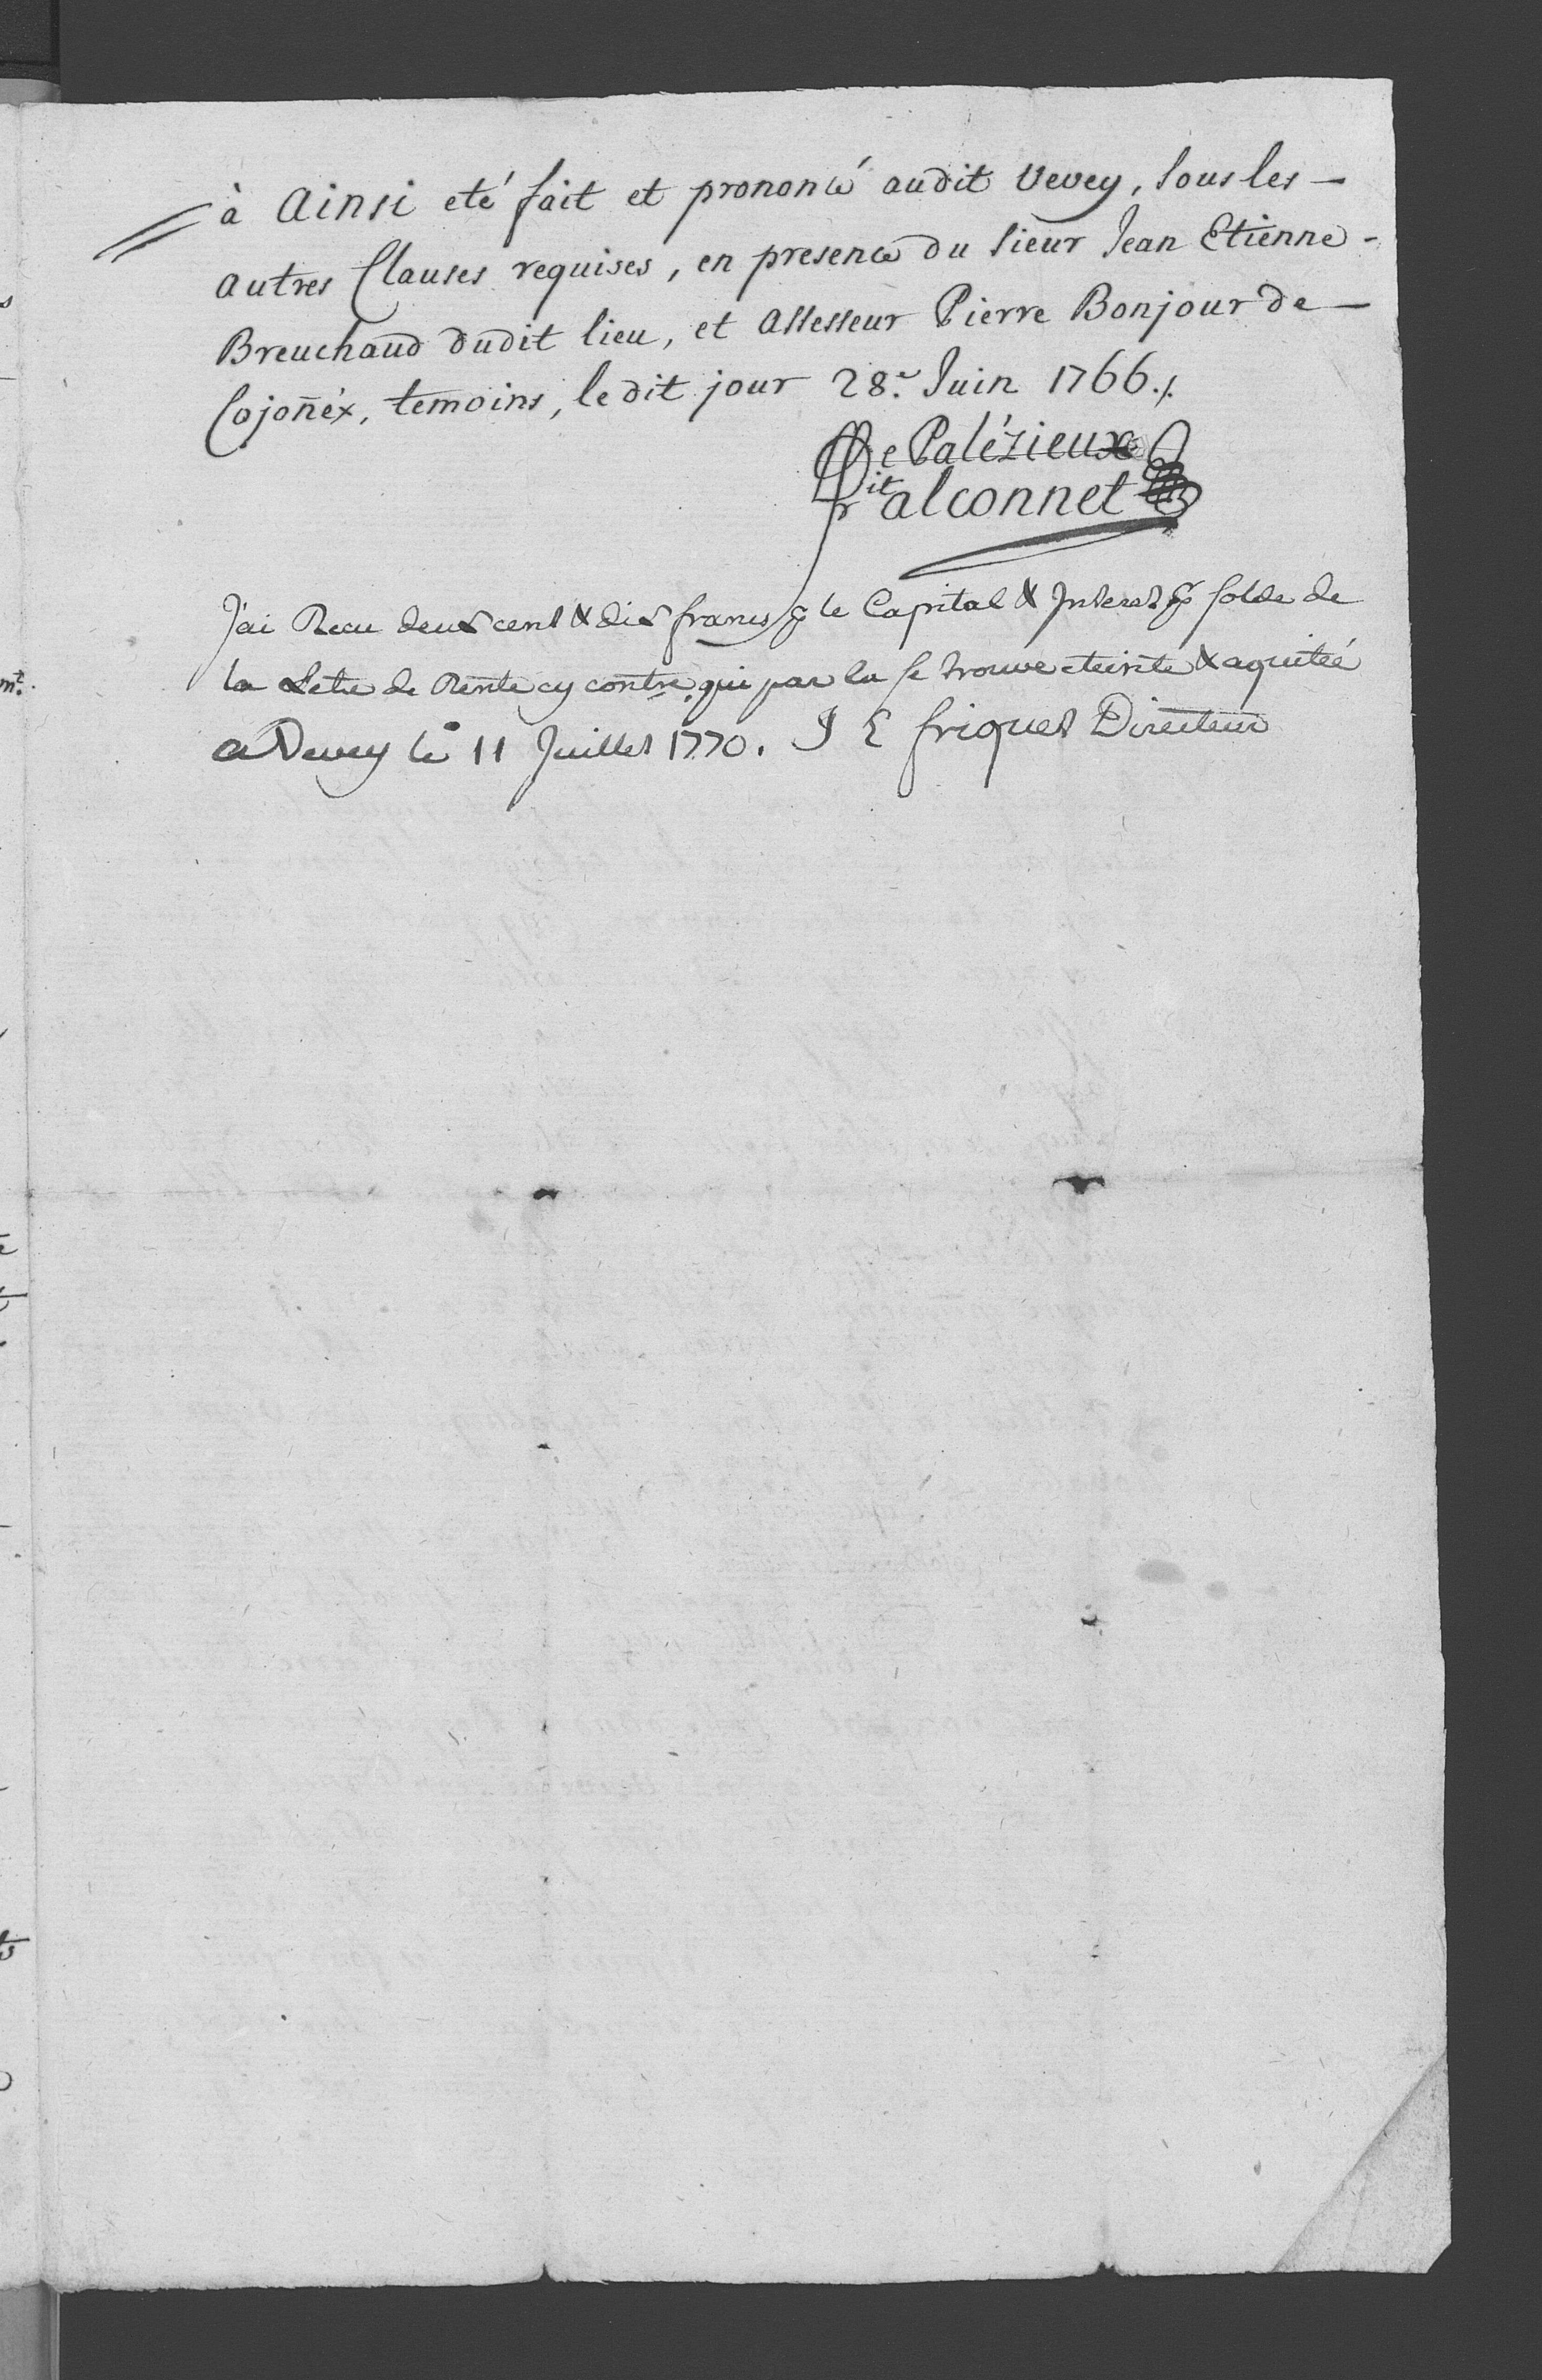 à Ainsi eté fait et prononcé audit Vevey, sous les —
autres Clauses requises, en presence du sieur Jean Etienne -
Breuchaud dudit lieu, et Assesseur Pierre Bonjour de —
Cojonéx, temoins, le dit jour 28.e Juin 1766./.
De Palézieux
dit falconnet
J'ai Recu deux cent & dix francs p le Capital & Interet pr solde de
la Letre de Rente cy contre, qui par la se trouve eteinte & aquitée
a Vevey le 11 Juillet 1770. J E friquet Directeur